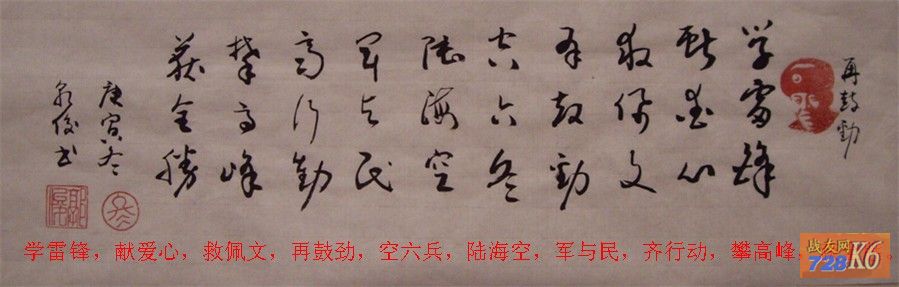 再鼓勁
学雷鋒
献爱心
救佩文
再鼓勁
空六兵
陸海空
軍与民
齐行動
攀高峰
获全勝
庚寅冬
泉俊书
学雷锋，献爱心，救佩文，再鼓劲，空六兵，陆海空，军与民，齐行动，攀高峰，
战友网
728K6